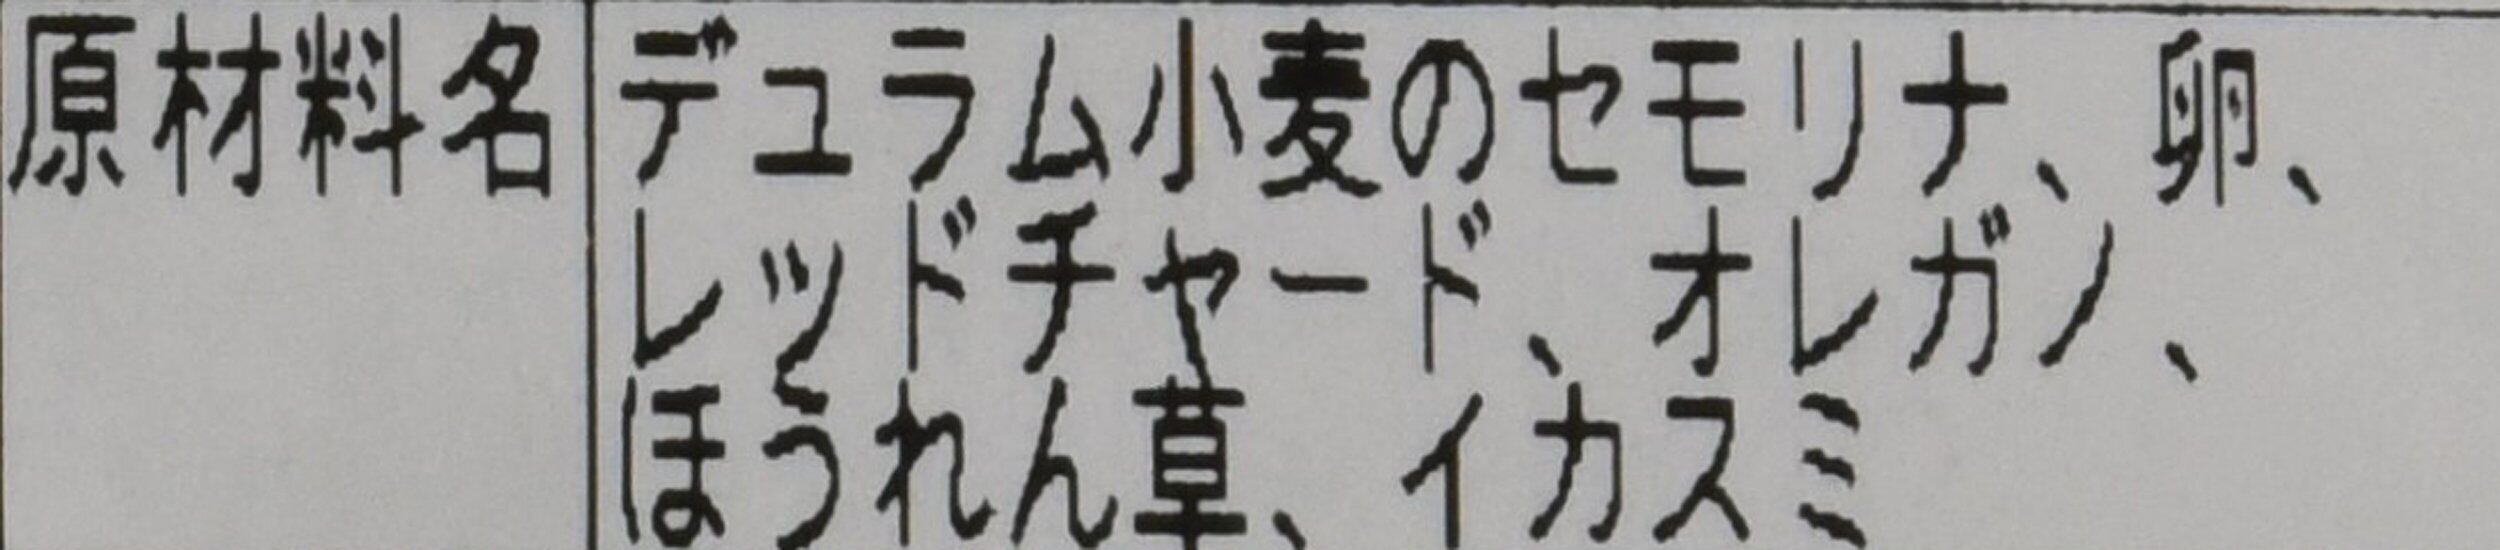 原材料名 デュラム小麦のセモリナ、卵、
レッドチャード、オレガノ、
ほうれん草、イカスミ